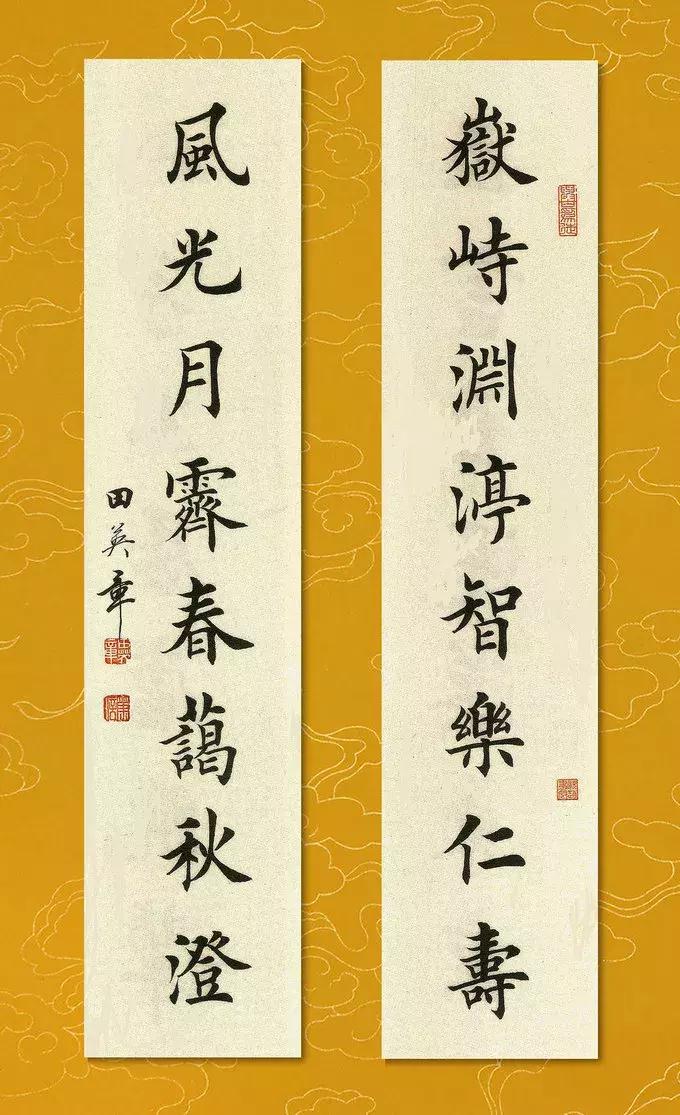 嶽峙淵渟智樂仁壽
風光月霽春藹秋澄
田英章